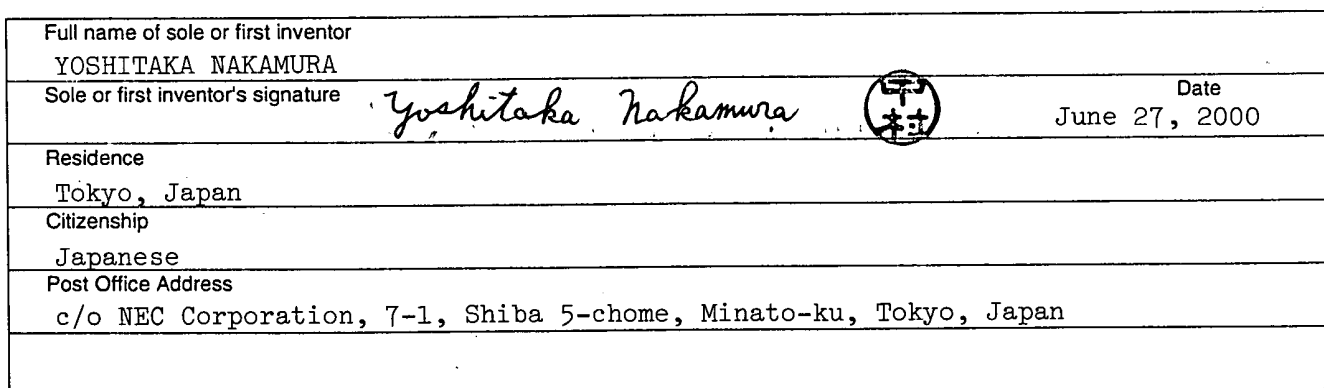 Full name of sole or first inventor
YOSHITAKA NAKAMURA
Sole or first inventor's signature Yoshitaka Nakamura Date
June 27, 2000
Residence
Tokyo, Japan
Citizenship
Japanese
Post Office Address
c/o NEC Corporation, 7-1, Shiba 5-chome, Minato-ku, Tokyo, Japan